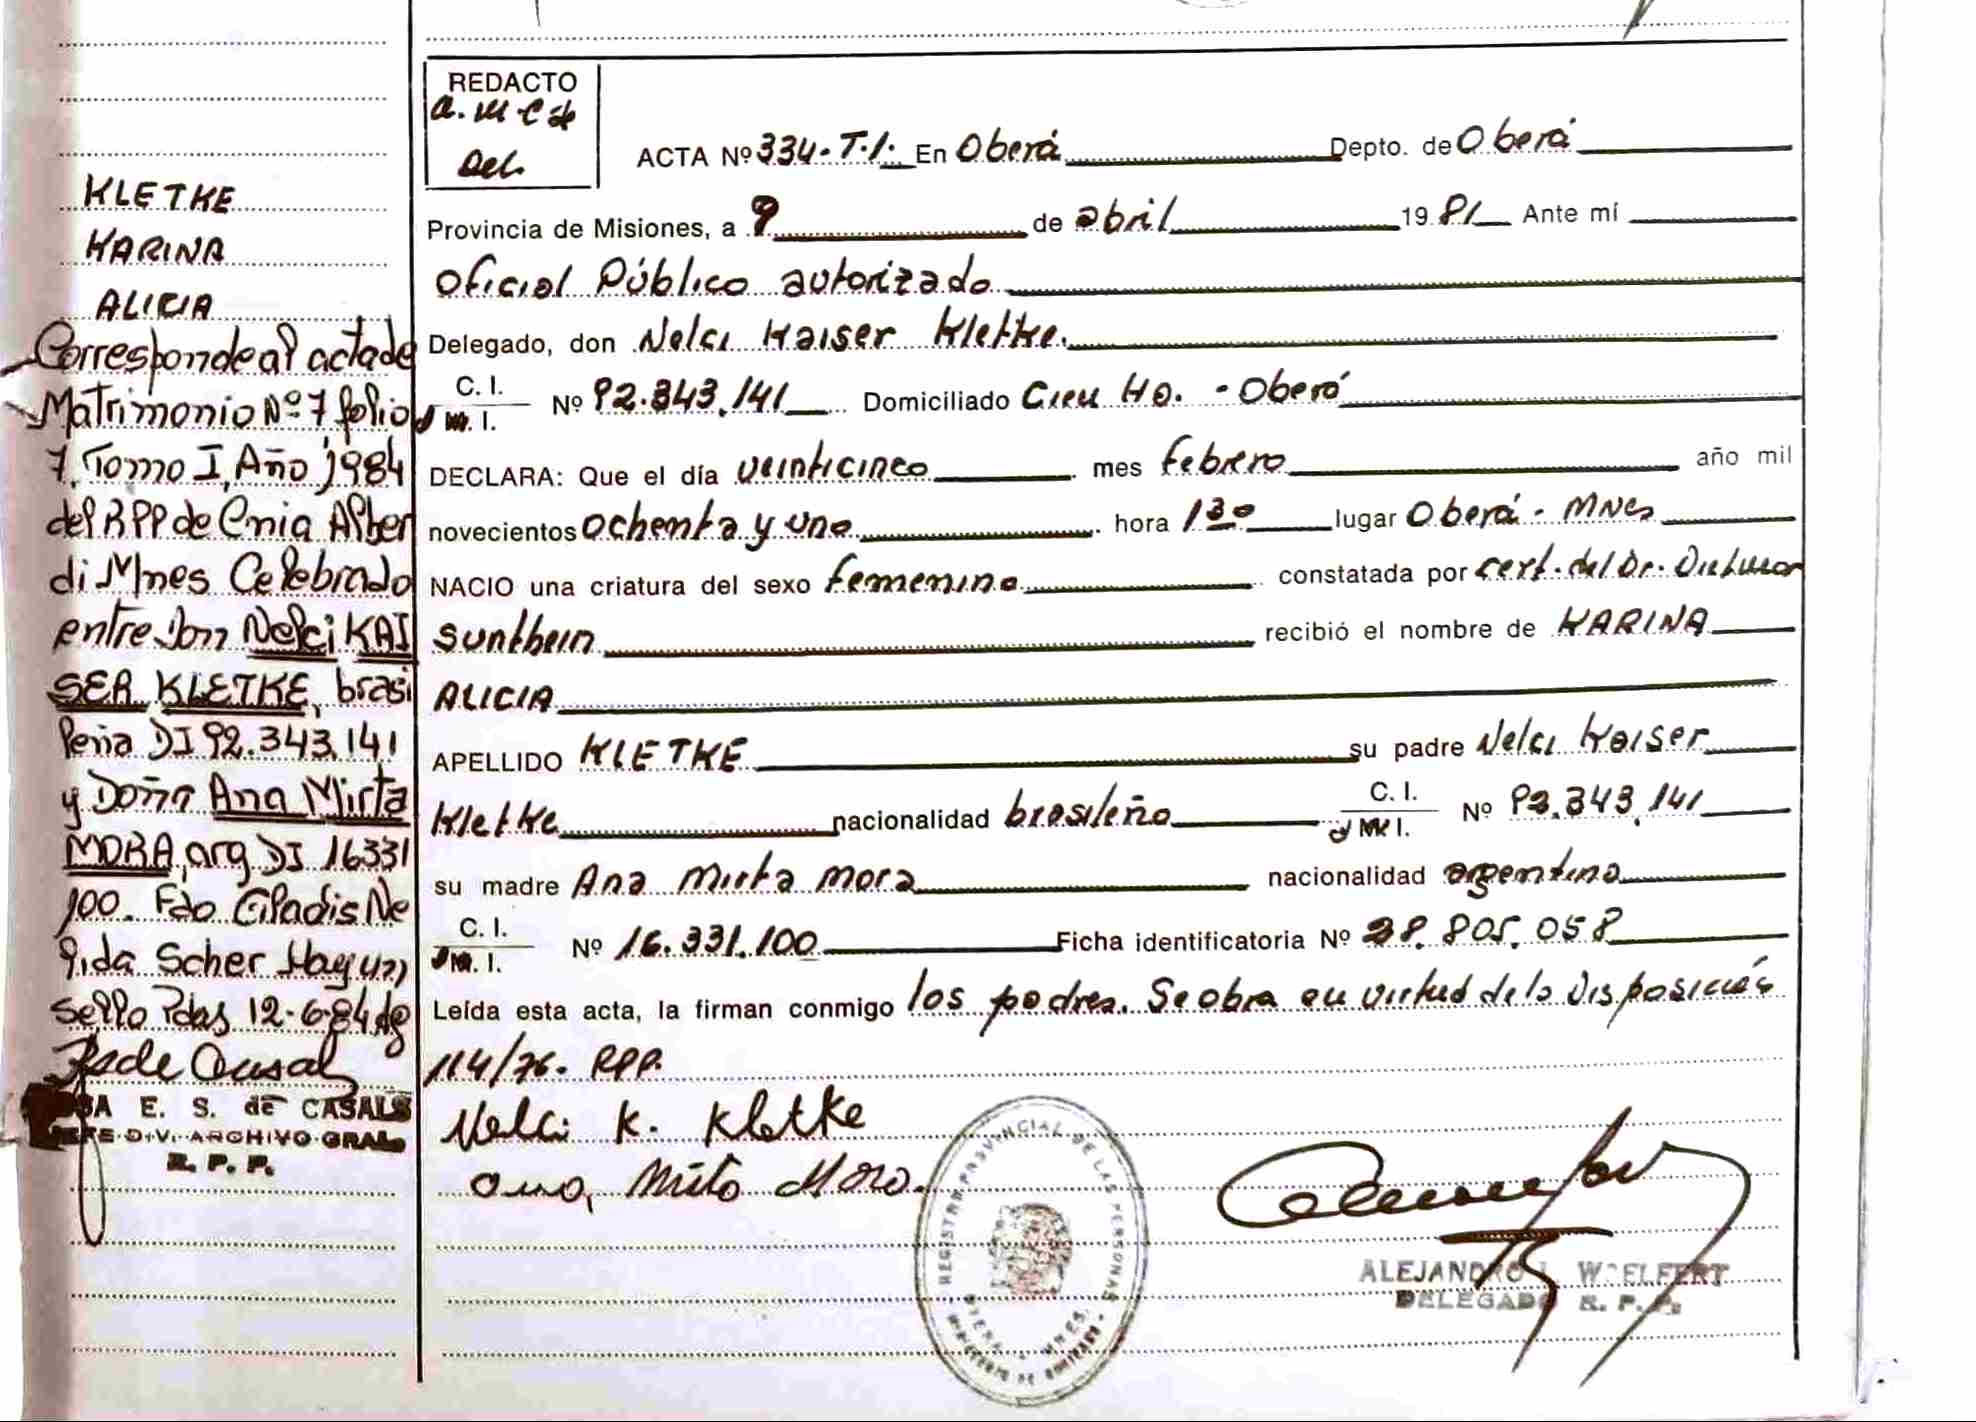 KLETKE
KARINA
ALICIA
Corresponde al acta de
Matrimonio Nº 7 folio
7, Tomo I, Año 1984
del RPP de Cnia Alber
di Mnes Celebrado
entre Don Nelci KAI
SER KLETKE, brasi
leña DI 92.343.141
y Doña Ana Mirta
MORA, arg DI 16331
100. Fdo Gladis Ne
lida Scher Hay un
Sello Pdas 12-6-84
E. S. de CASALS
JEFE DIV. ARCHIVO GRAL.
R. P. P.
REDACTO
Del.
ACTA Nº 334-T.I. En Oberá Depto. de Oberá
Provincia de Misiones, a 9 de abril 1981 Ante mí
Oficial Público autorizado
Delegado, don Nelci Kaiser Kletke.
C. I.
M. I. Nº 92.343.141 Domiciliado - Oberá
DECLARA: Que el día veinticinco mes febrero año mil
novecientos ochenta y uno hora 1 30 lugar Oberá - Mnes
NACIO una criatura del sexo femenino constatada por cert. del Dr.
Sunthein recibió el nombre de KARINA
ALICIA
APELLIDO KLETKE su padre Nelci Kaiser
Kletke nacionalidad brasileño C. I. M. I. Nº 92.343.141
su madre Ana Mirta Mora nacionalidad argentina
C. I.
M. I. Nº 16.331.100 Ficha identificatoria Nº 28.805.058
Leída esta acta, la firman conmigo los padres. Se obra en virtud de la Disposición
114/76. RPP.
Nelci K. Kletke
Ana Mirta Mora.
REGISTRO PROVINCIAL DE LAS PERSONAS
OBERA - MNES.
MINISTERIO DE GOBIERNO
ALEJANDRO WOELFERT
DELEGADO R. P. P.